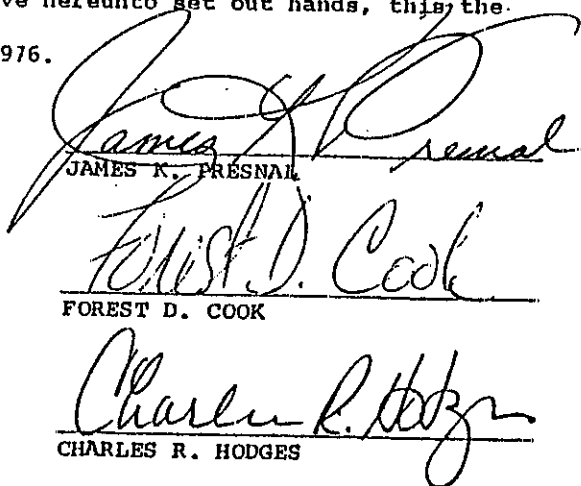 ve hereunto set out hands, this the
976.
James K Presnal
JAMES K. PRESNAL
Forest D. Cook
FOREST D. COOK
Charles R. Hodges
CHARLES R. HODGES